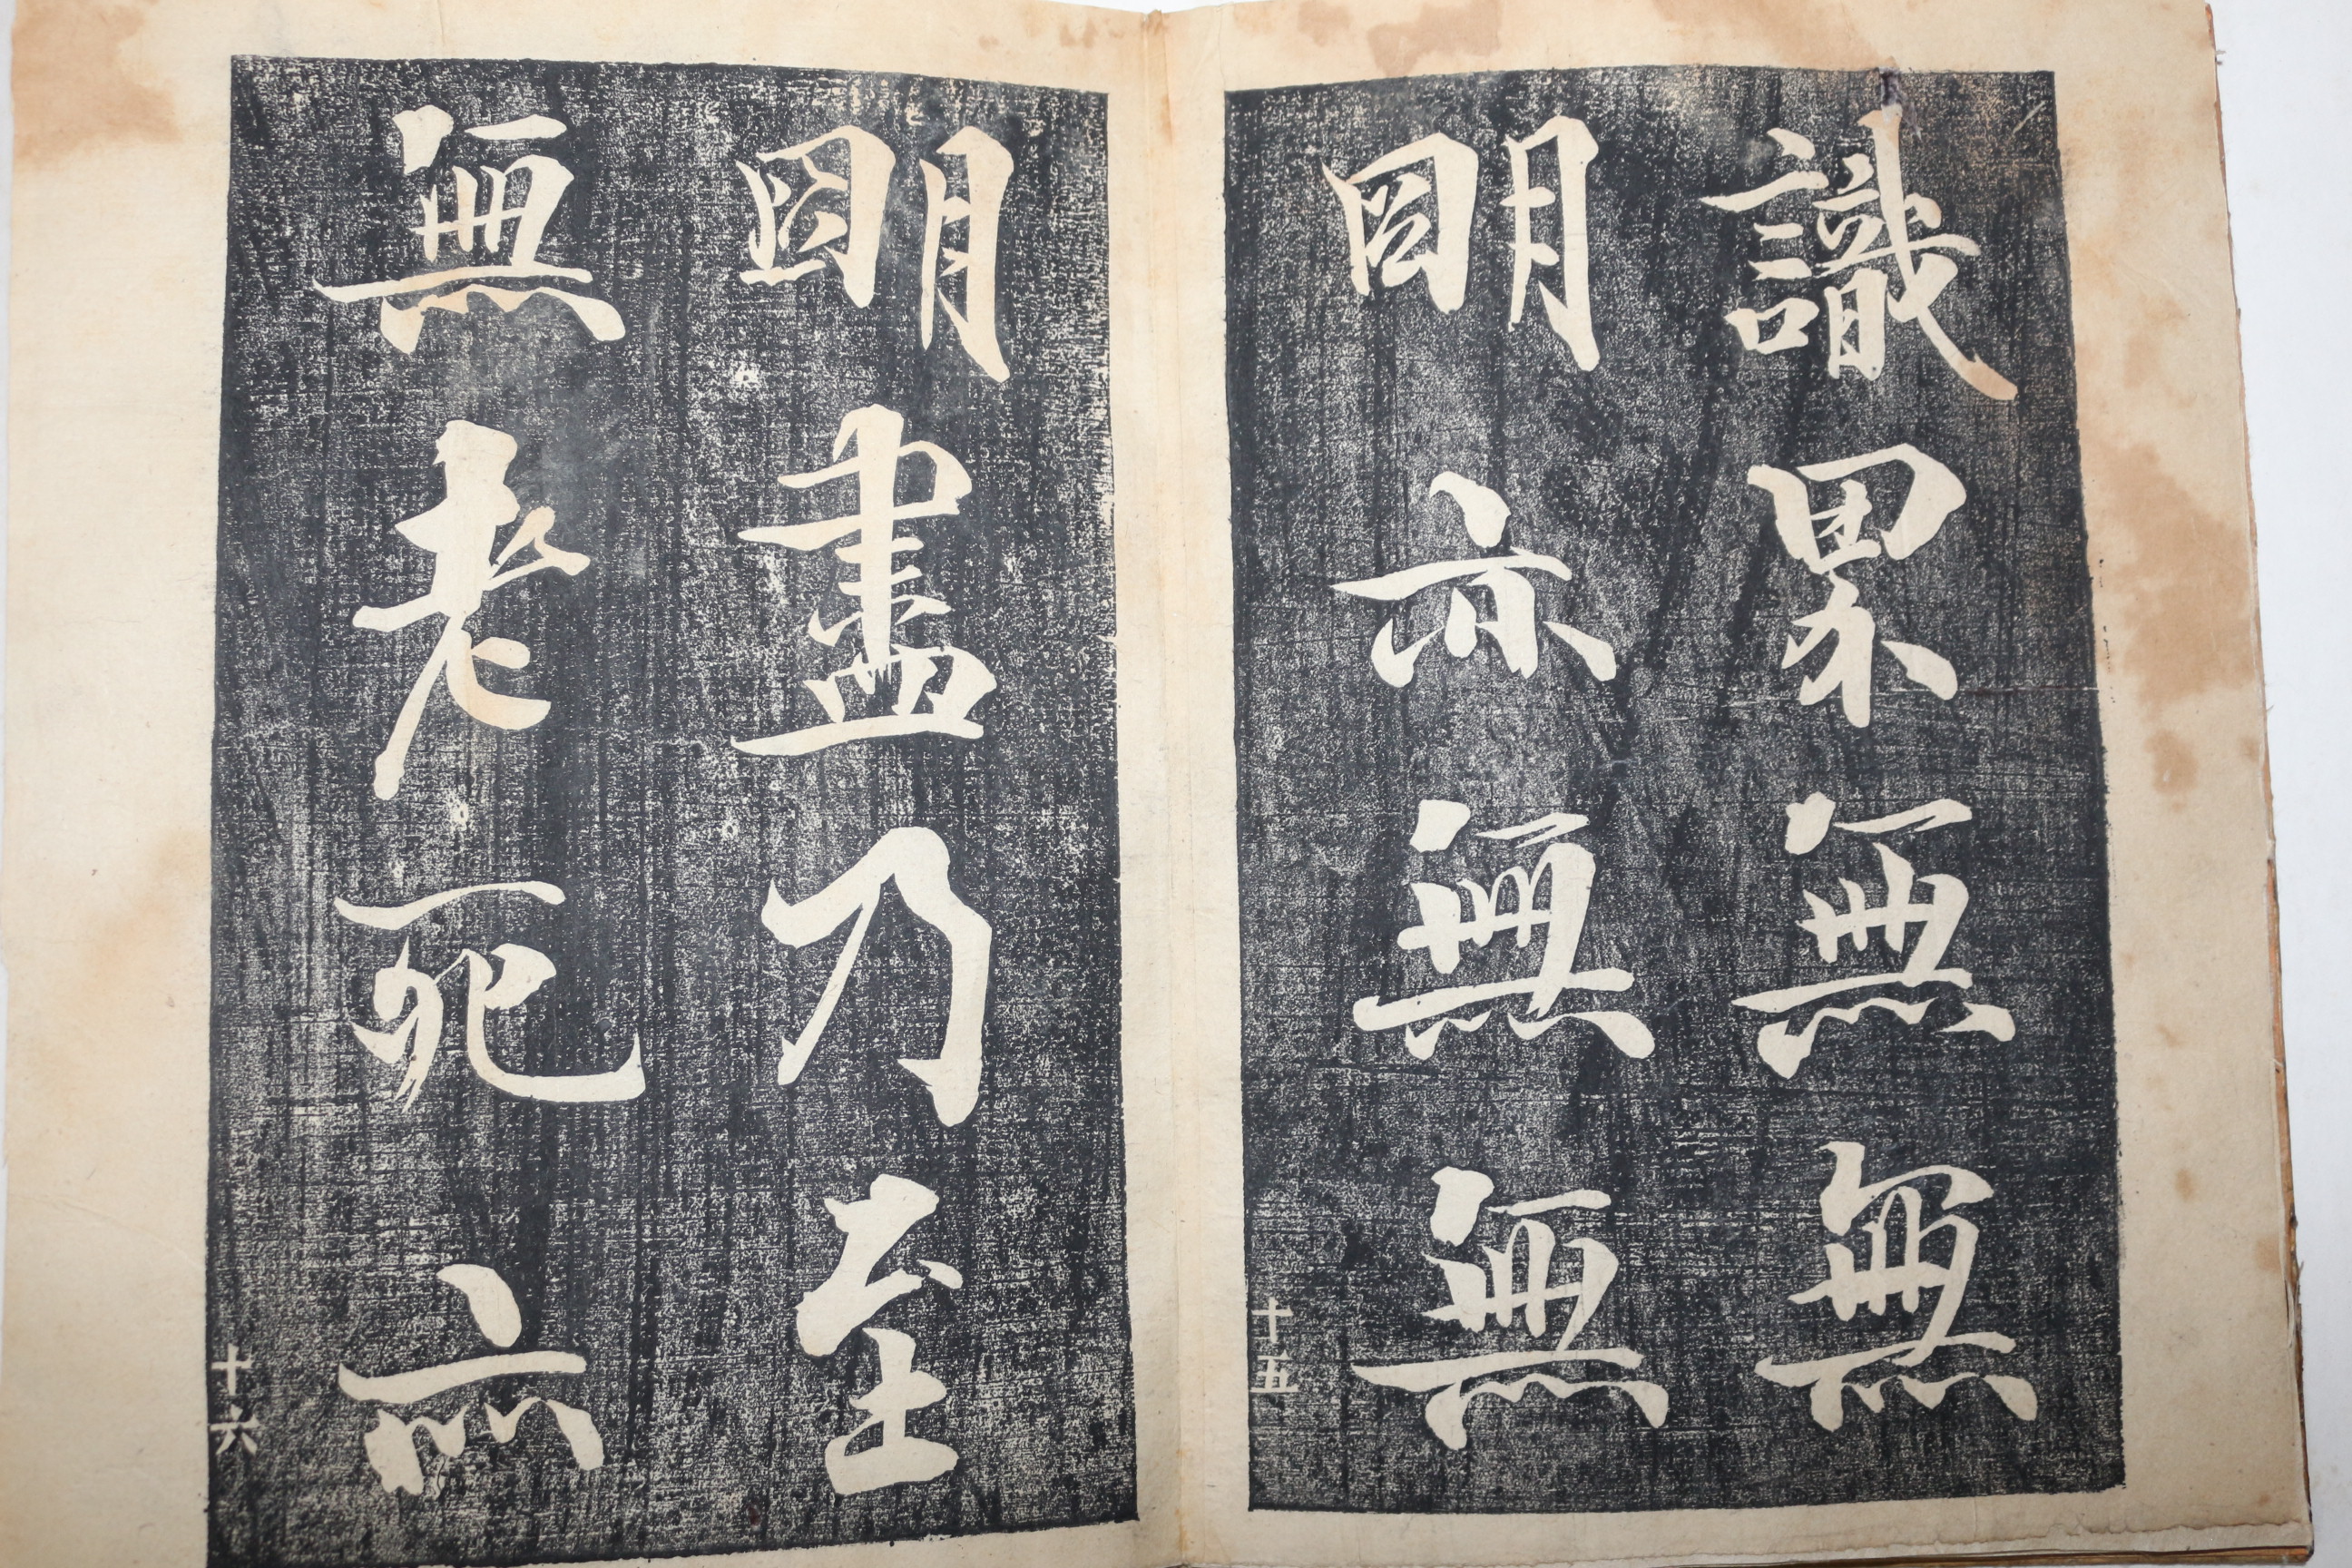 識界無無
明亦無無
十五
明盡乃至
無老死亦
十六